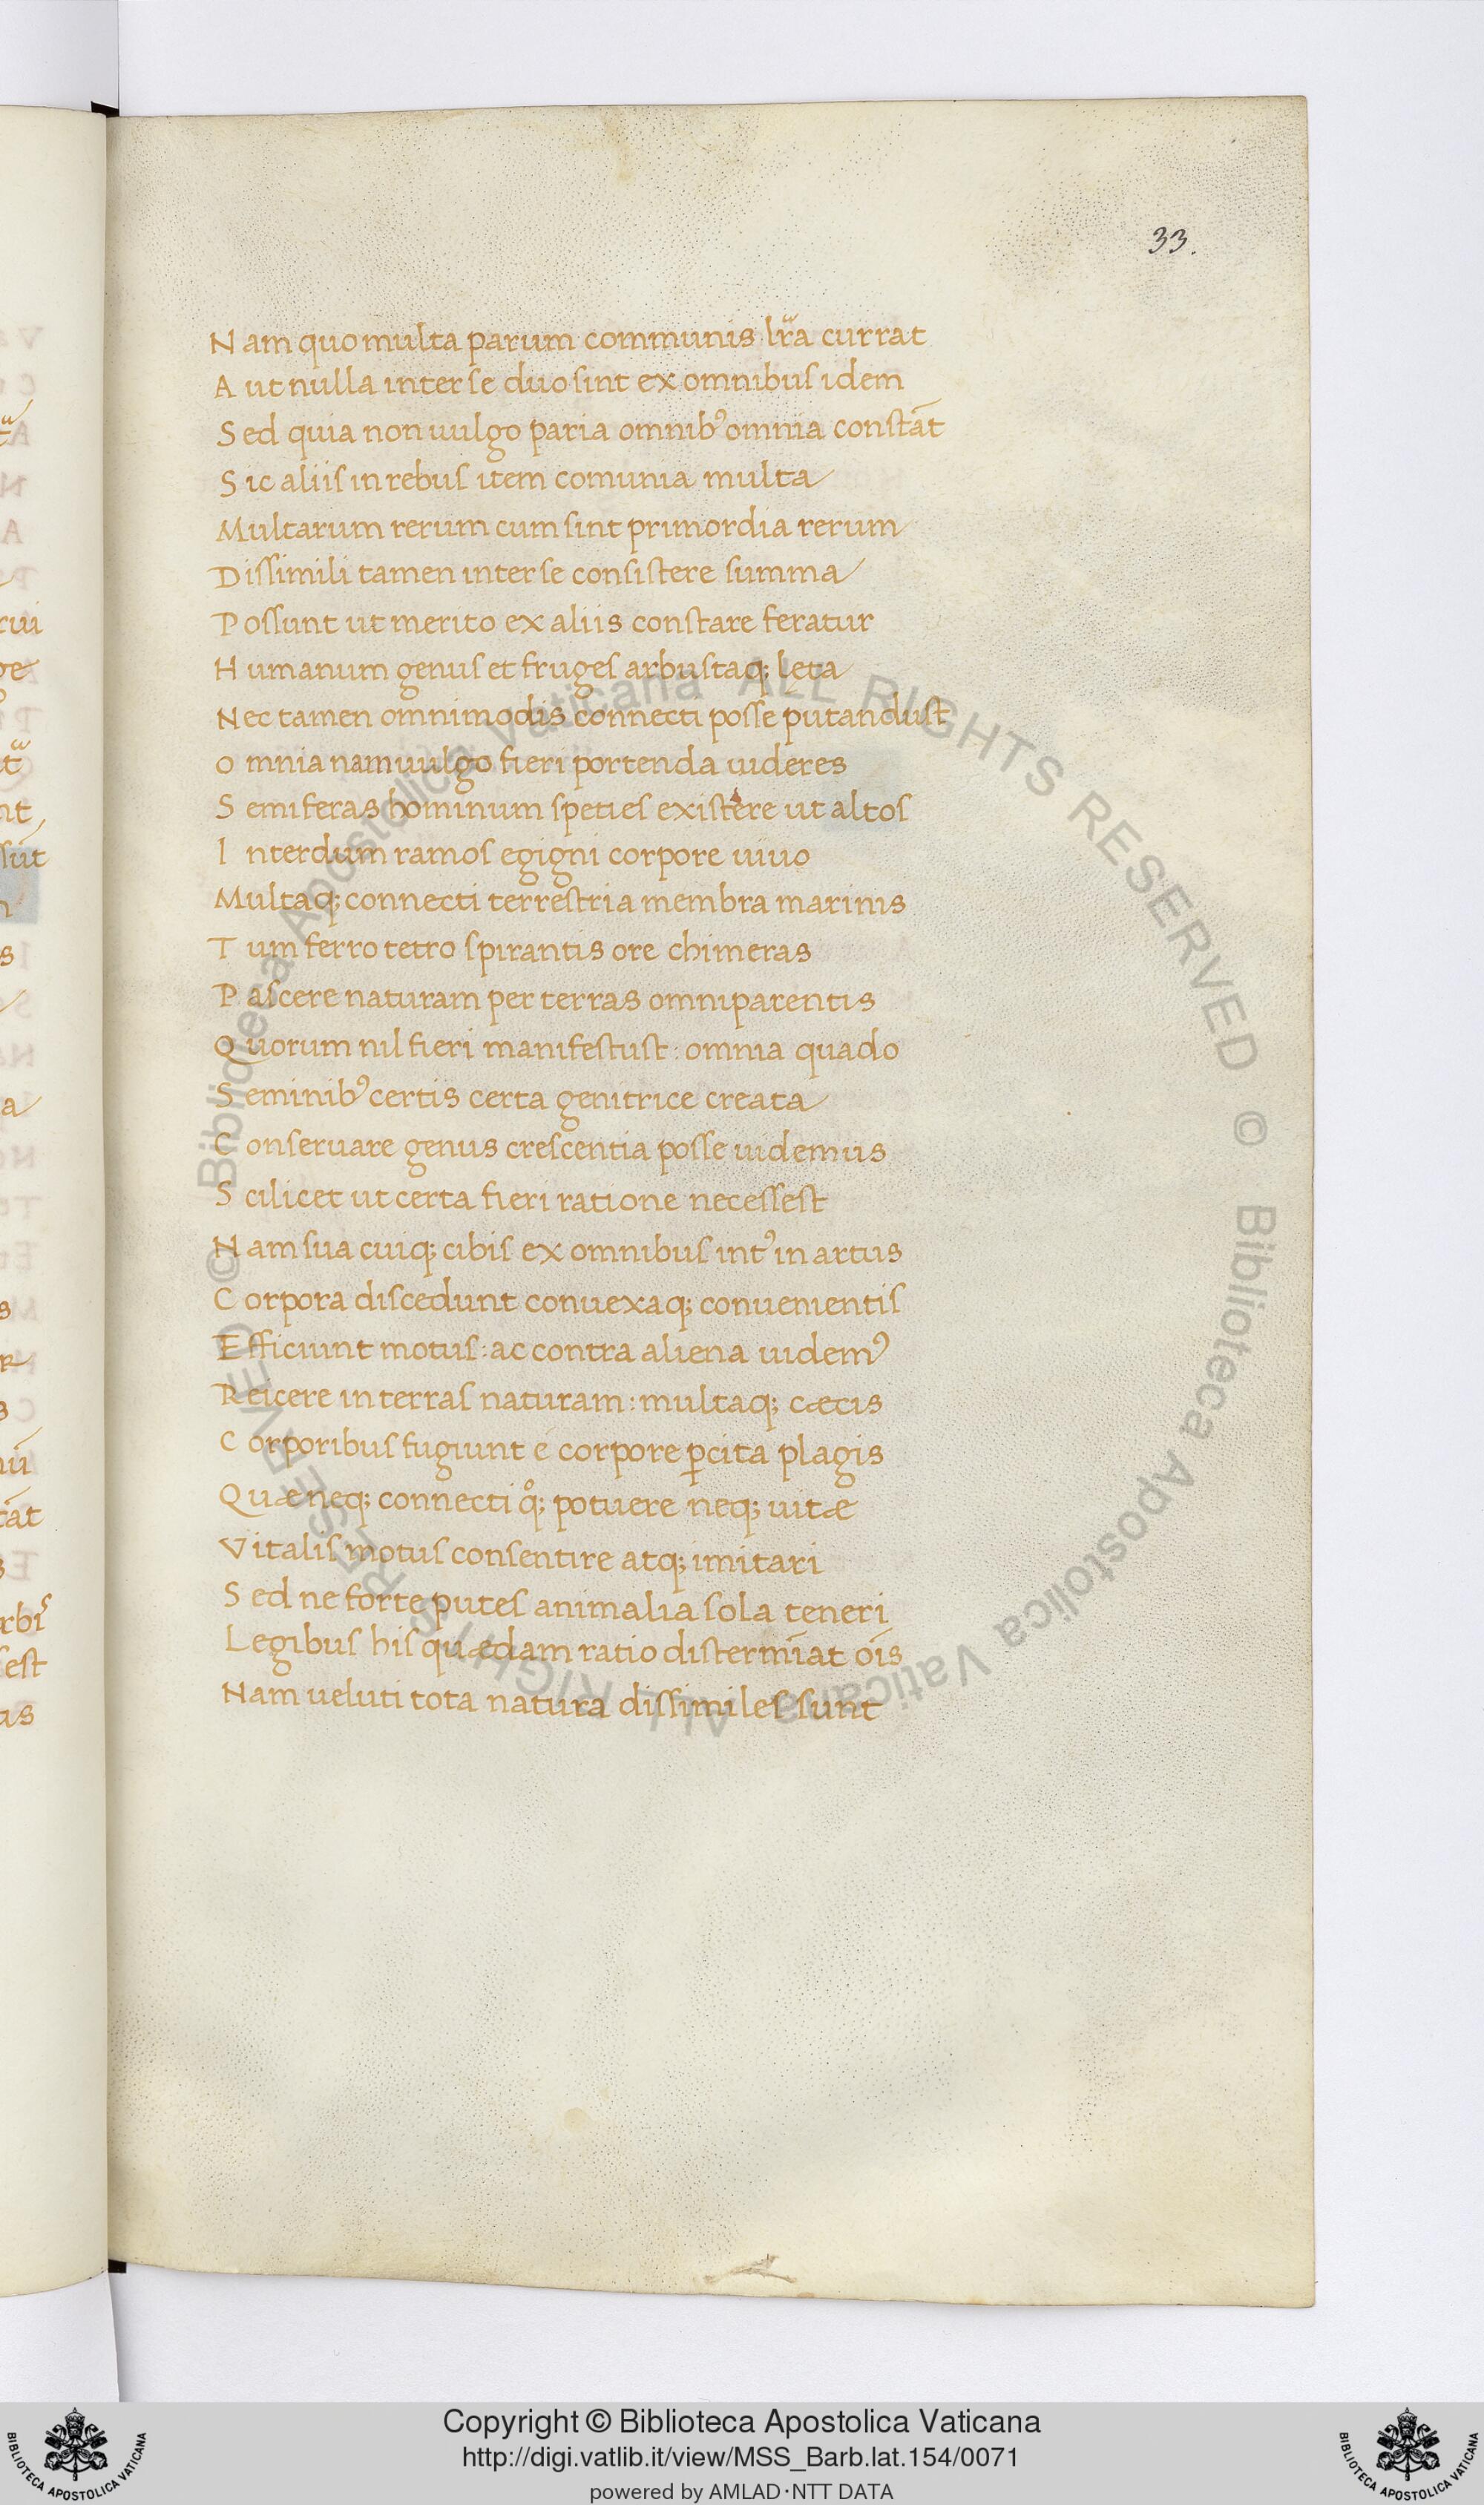 33.
Nam quo multa parum communis lr̃a currat
Aut nulla inter se duo sint ex omnibus idem
Sed quia non uulgo paria omnibꝰ omnia constāt
Sic aliis in rebus item comunia multa
Multarum rerum cum sint primordia rerum
Dissimili tamen inter se consistere summa
Possunt ut merito ex aliis constare feratur
Humanum genus et fruges arbustaq; leta
Nec tamen omnimodis connecti posse putandust
omnia nam uulgo fieri portenda uideres
Semiferas hominum speties existere ut altos
Interdum ramos egigni corpore uiuo
Multaq; connecti terrestria membra marinis
Tum ferro tetro spirantis ore chimeras
Pascere naturam per terras omniparentis
Quorum nil fieri manifestust: omnia quado
Seminibꝰ certis certa genitrice creata
Conseruare genus crescentia posse uidemus
Scilicet ut certa fieri ratione necessest
Nam sua cuiq; cibis ex omnibus intꝰ in artus
Corpora discedunt conuexaq; conuenientis
Efficiunt motus: ac contra aliena uidemꝰ
Reicere in terras naturam: multaq; cæcis
Corporibus fugiunt é corpore ꝑcita plagis
Quæ neq; connecti qͦ; potuere neq; uitæ
Vitalis motus consentire atq; imitari
Sed ne forte putes animalia sola teneri
Legibus his quædam ratio distermīat oīs
Nam ueluti tota natura dissimiles sunt
Copyright © Biblioteca Apostolica Vaticana
http://digi.vatlib.it/view/MSS_Barb.lat.154/0071
powered by AMLAD·NTT DATA
BIBLIOTECA APOSTOLICA VATICANA
BIBLIOTECA APOSTOLICA VATICANA
© Biblioteca Apostolica Vaticana ALL RIGHTS RESERVED
© Biblioteca Apostolica Vaticana ALL RIGHTS RESERVED